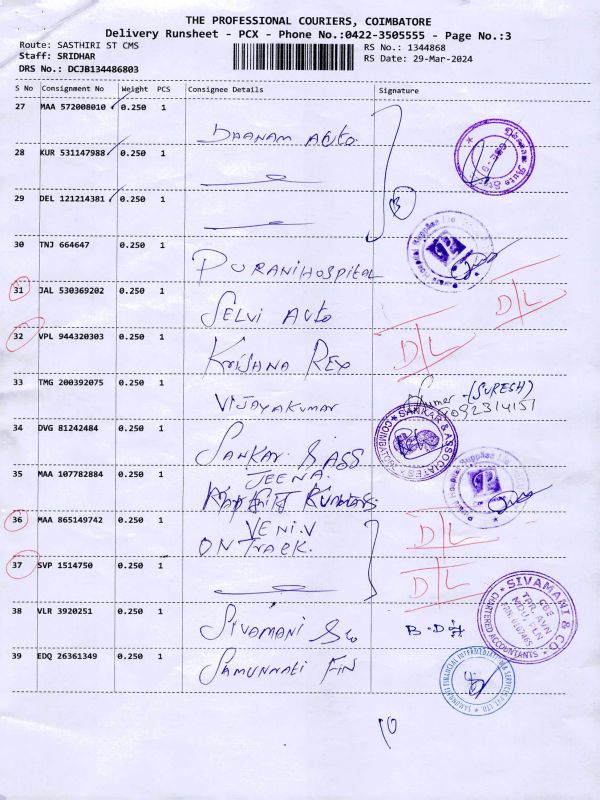 THE PROFESSIONAL COURIERS, COIMBATORE
Delivery Runsheet - PCX - Phone No.:0422-3505555 - Page No.:3
Route: SASTHIRI ST CMS
Staff: SRIDHAR
DRS No.: DCJB134486803
RS No.: 1344868
RS Date: 29-Mar-2024
S No Consignment No Weight PCS Consignee Details Signature
27 MAA 572008010 0.250 1
DHANAM AUTO
28 KUR 531147988 0.250 1
29 DEL 121214381 0.250 1
30 TNJ 664647 0.250 1
PURANI HOSPITAL
31 JAL 530369202 0.250 1
SELVI AUTO
D/L
32 VPL 944320303 0.250 1
KRISHNA REX
D/L
33 TMG 200392075 0.250 1
VIJAYAKUMAR
(SURESH)
34 DVG 81242484 0.250 1
SANKAR & ASS
SANKAR & ASSOCIATES
COIMBATORE
35 MAA 107782884 0.250 1
JEENA
36 MAA 865149742 0.250 1
VENI.V
ON TRACK.
D/L
37 SVP 1514750 0.250 1
D/L
38 VLR 3920251 0.250 1
SIVAMANI & Co
SIVAMANI & CO
CHARTERED ACCOUNTANTS
39 EDQ 26361349 0.250 1
SAMUNNATI FIN
10